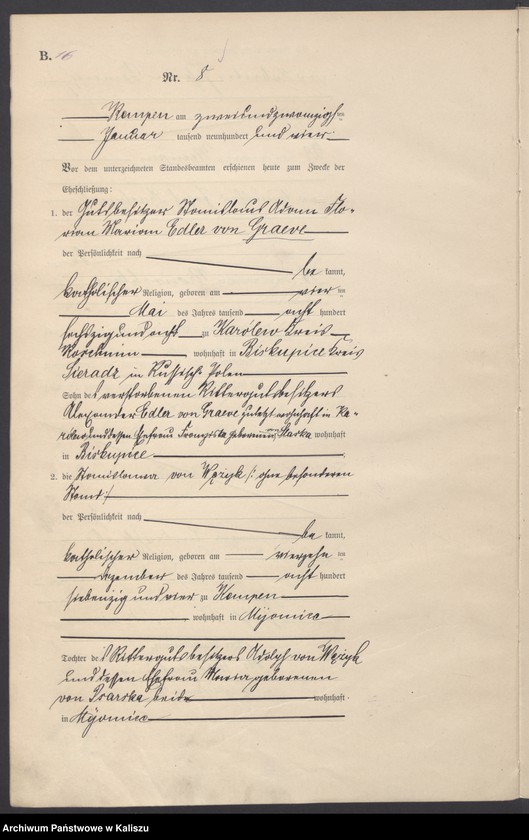 B. 16
Nr. 8
Kempen am zweiundzwanzigsten
Januar tausend neunhundert und vier
Vor dem unterzeichneten Standesbeamten erschienen heute zum Zwecke der
Eheschließung:
1. der Gutsbesitzer Stanislaus Adam Flo-
rian Marian Edler von Graeve
der Persönlichkeit nach
be kannt,
katholischer Religion, geboren am vier ten
Mai des Jahres tausend acht hundert
sechszig und acht zu Karolew Kreis
Koschmin wohnhaft in Biskupice Kreis
Sieradz in Russisch Polen
Sohn des verstorbenen Rittergutsbesitzers
Alexander Edler von Graeve zuletzt wohnhaft in Ka-
und dessen Ehefrau Franziska geborenen wohnhaft
in Biskupice
2. die Stanislawa von Wężyk /: ohne besonderen
Stand :/
der Persönlichkeit nach
be kannt,
katholischer Religion, geboren am vierzehn ten
Dezember des Jahres tausend acht hundert
siebenzig und vier zu Kempen
, wohnhaft in Myjomice
Tochter des Rittergutsbesitzers Adolph von Wężyk
und dessen Ehefrau Maria geborenen
von Psarska beide wohnhaft
in Myjomice
Archiwum Państwowe w Kaliszu